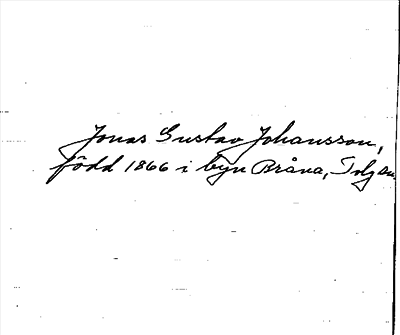 Jonas Gustav Johansson,
född 1866 i byn Bråna,